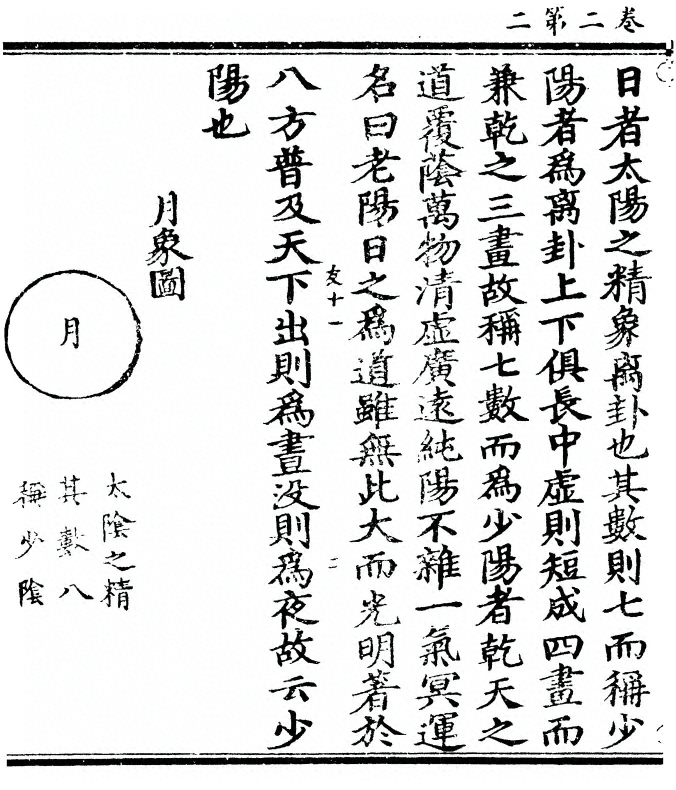 卷二第二
日者太陽之精象离卦也其數則七而稱少
陽者爲离卦上下俱長中虛則短成四畫而
兼乾之三畫故稱七數而爲少陽者乾天之
道覆蔭萬物清虛廣遠純陽不雜一氣冥運
名曰老陽日之爲道雖無此大而光明著於
友十一
二
八方普及天下出則爲晝没則爲夜故云少
陽也
月象圖
月
太陰之精
其數八
稱少陰